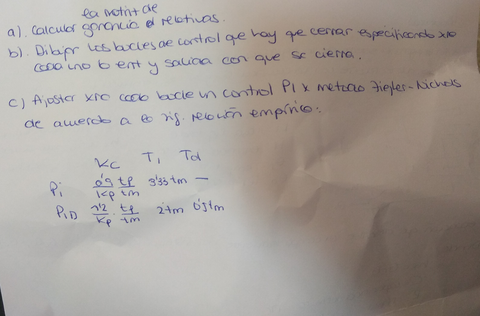 la matriz de
a). Calcular ganancias relativas.
b). Dibujar los bucles de control que hay que cerrar especificando xra
cada uno la ent y salida con que se cierra.
c) Ajustar xra cada bucle un control PI x metodo Ziegler-Nichols
de acuerdo a la sig. relación empírica:
Kc Ti Td
Pi 0'9/Kp tp/tm 3'33 tm —
PiD 1'2/Kp · tp/tm 2tm 0'5tm